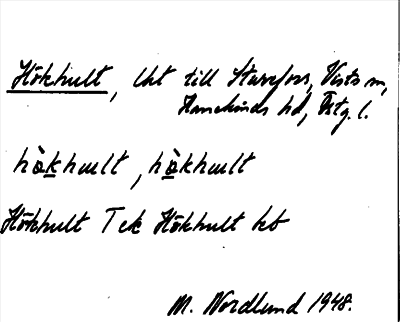 Hökhult, lht till Starrfors, Vists sn,
Hanekinds hd, Östg. l.
hö̀khult, hö̀khult
Hökhult T ek Hökhult kb
M. Nordlund 1948.